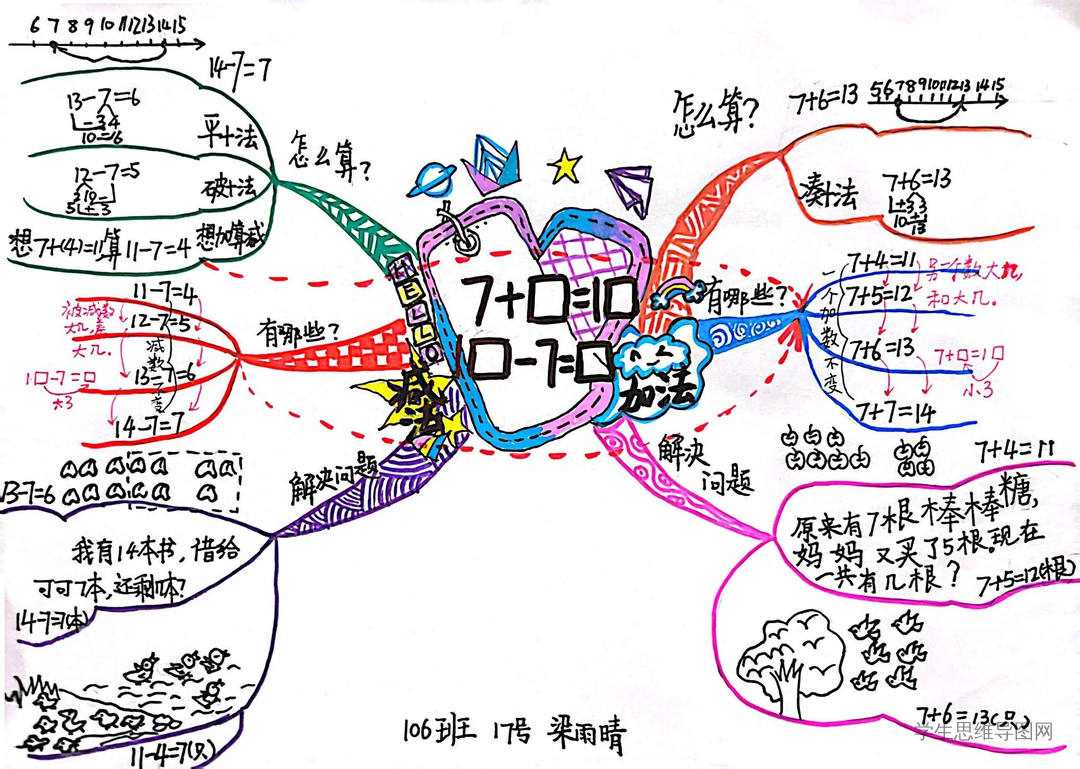 6 7 8 9 10 11 12 13 14 15
14-7=7
13-7=6
-3 4
10=6
平十法
怎么算?
12-7=5
2 10
5 +3
破十法
想7+(4)=11算11-7=4
想加算减
11-7=4
12-7=5
13-7=6
14-7=7
被减数
大几,差
大几.
减数不变
1□-7=□
大3
有哪些?
HELLO
减法
解决问题
13-7=6
我有14本书,借给
可可7本,还剩几本?
14-7=7(本)
11-4=7(只)
7+□=1□
1□-7=□
加法
怎么算?
7+6=13
5 6 7 8 9 10 11 12 13 14 15
凑十法
7+6=13
+3 3
10
13
有哪些?
7+4=11
7+5=12
7+6=13
7+7=14
一个加数不变
另一个数大几,
和大几.
7+□=1□
小3
解决
问题
7+4=11
原来有7根棒棒糖,
妈妈又买了5根.现在
一共有几根?
7+5=12(根)
7+6=13(只)
106班 17号 梁雨晴
学生思维导图网